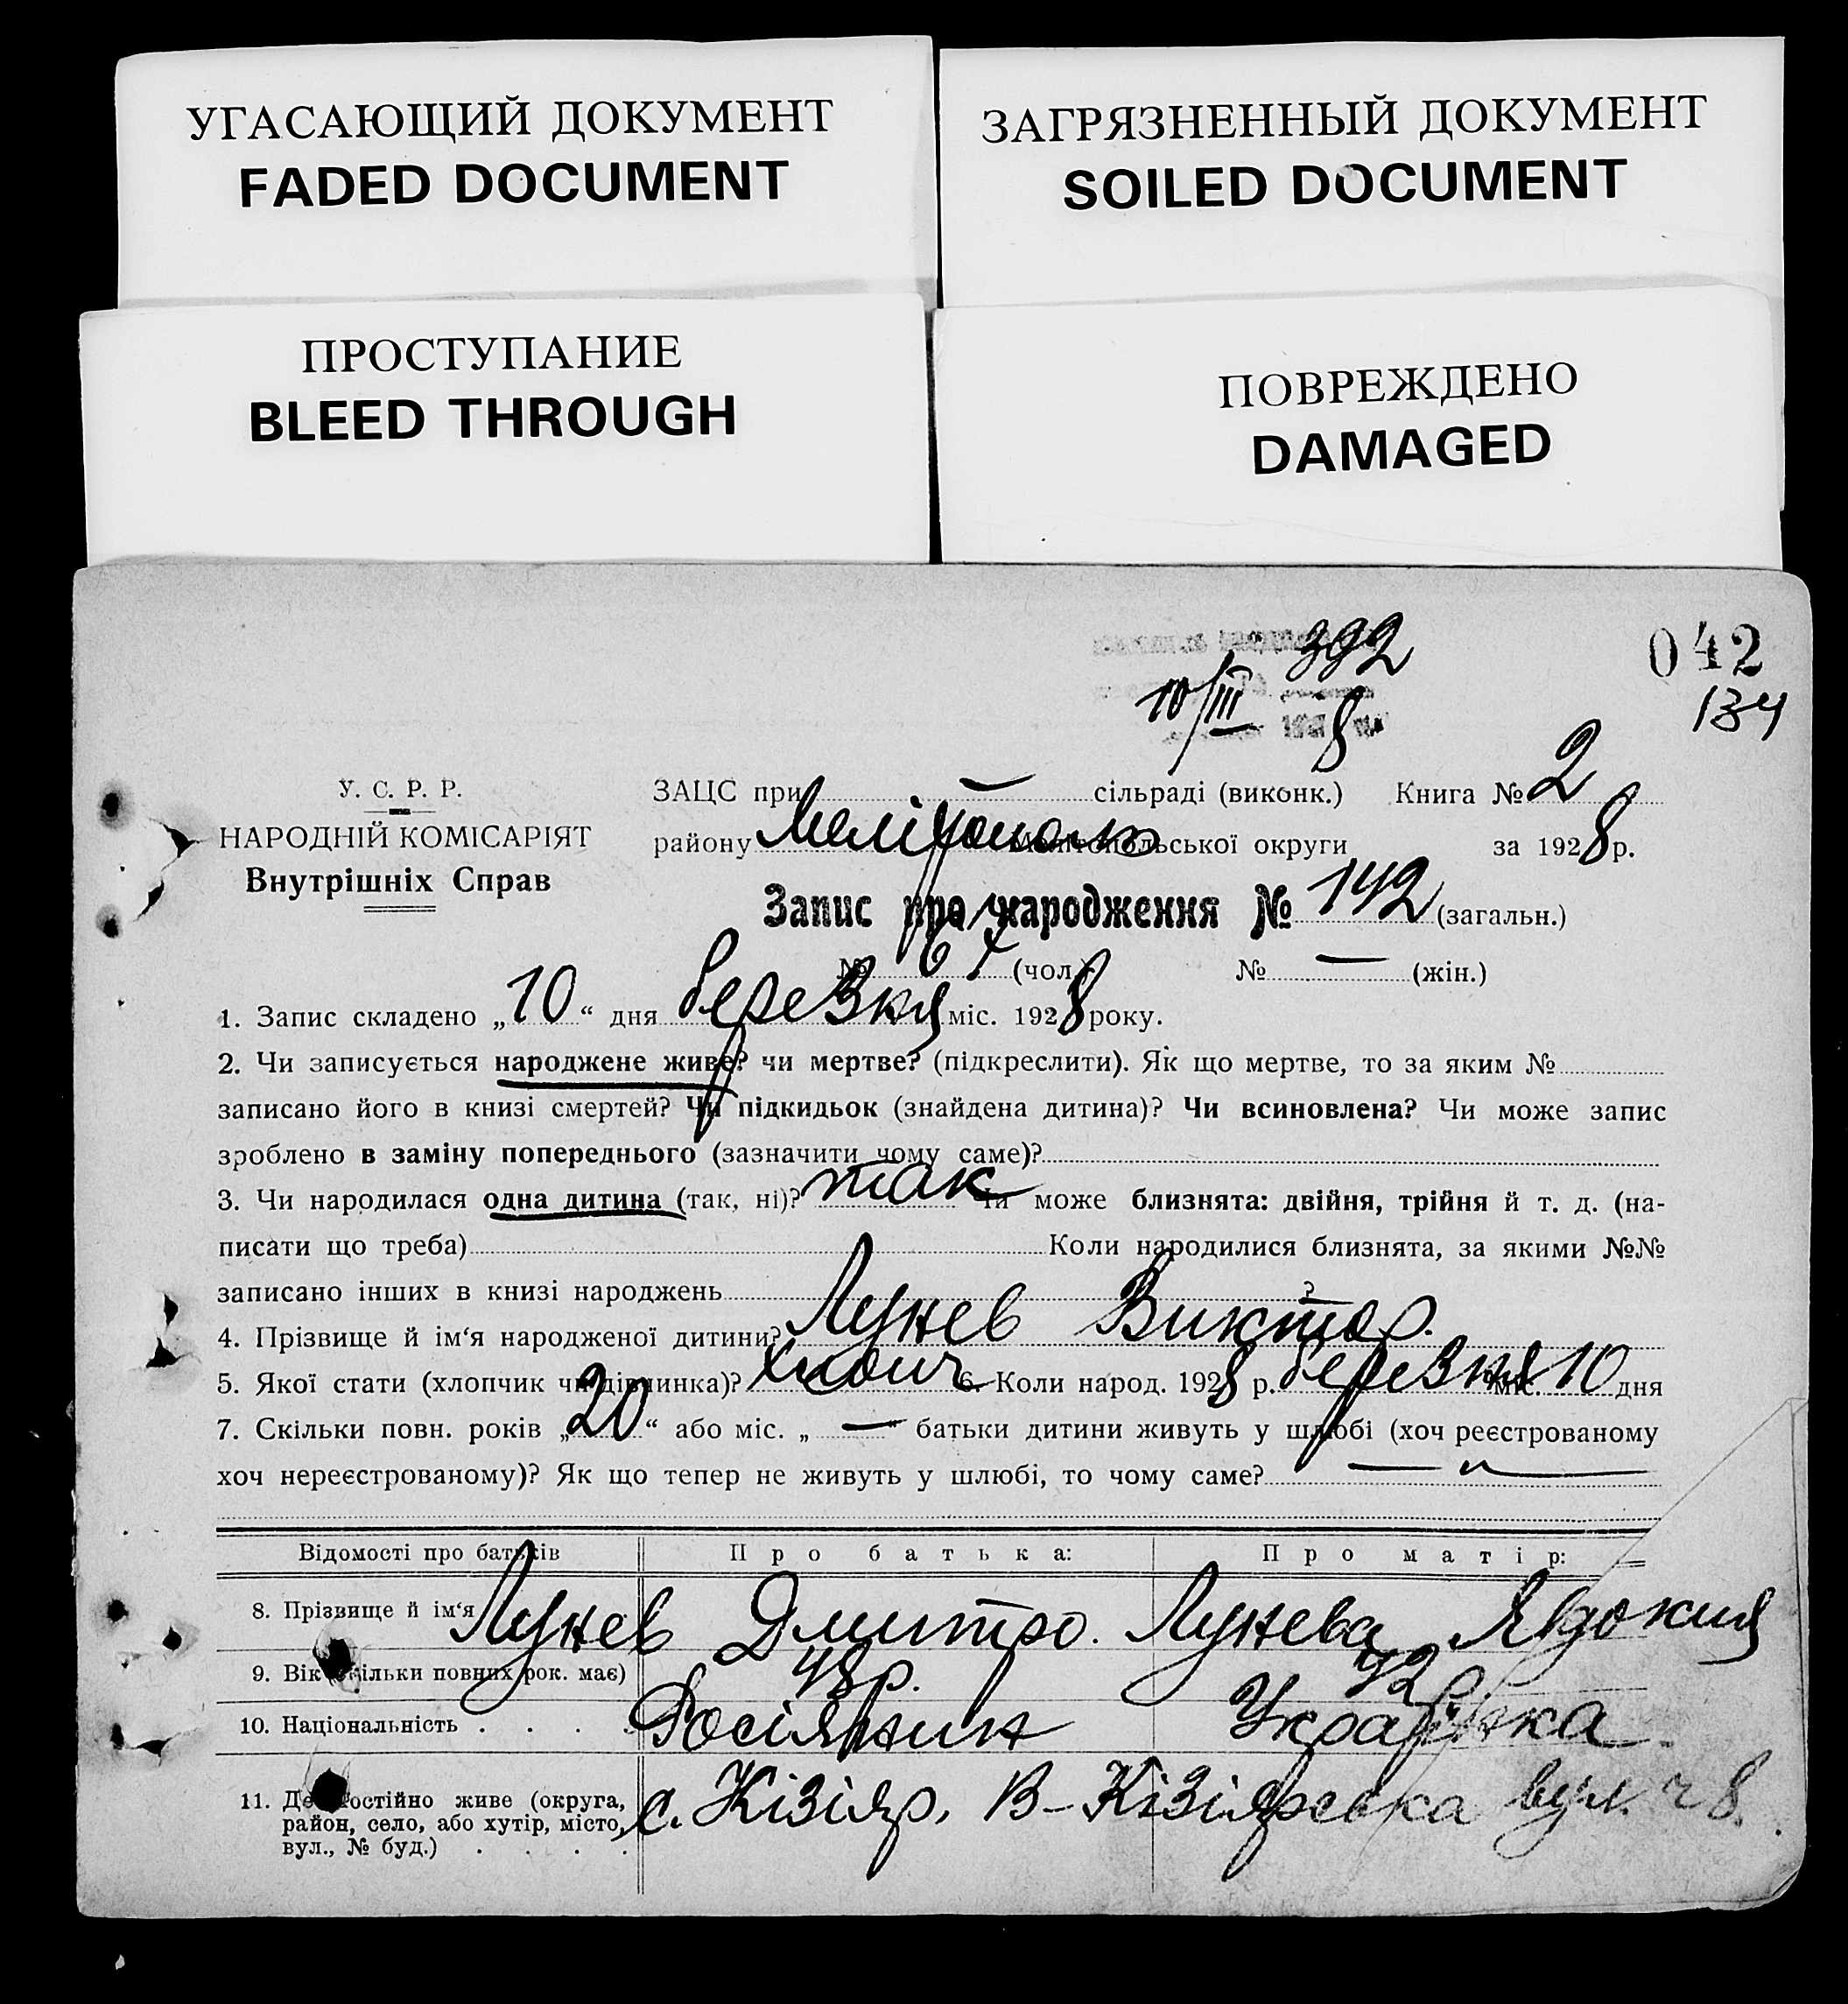 УГАСАЮЩИЙ ДОКУМЕНТ
FADED DOCUMENT
ЗАГРЯЗНЕННЫЙ ДОКУМЕНТ
SOILED DOCUMENT
ПРОСТУПАНИЕ
BLEED THROUGH
ПОВРЕЖДЕНО
DAMAGED
392
042
10/III 8
134
У. С. Р. Р.
НАРОДНІЙ КОМІСАРІЯТ
Внутрішніх Справ
ЗАЦС при — сільраді (виконк.) Книга № 2
району Мелітополь Мелітопольської округи за 1928 р.
Запис про народження № 142 (загальн.)
№ 67 (чол.) № — (жін.)
1. Запис складено „10“ дня березня міс. 1928 року.
2. Чи записується народжене живе? чи мертве? (підкреслити). Як що мертве, то за яким №
записано його в книзі смертей? Чи підкидьок (знайдена дитина)? Чи всиновлена? Чи може запис
зроблено в заміну попереднього (зазначити чому саме)?
3. Чи народилася одна дитина (так, ні)? так Чи може близнята: двійня, трійня й т. д. (на-
писати що треба) Коли народилися близнята, за якими №№
записано інших в книзі народжень ?
4. Прізвище й ім‘я народженої дитини? Лунев Виктор.
5. Якої стати (хлопчик чи дівчинка)? хлопч 6. Коли народ. 1928 р. березня міс. 10 дня
7. Скільки повн. років „20“ або міс. „—“ батьки дитини живуть у шлюбі (хоч реєстрованому
хоч нереєстрованому)? Як що тепер не живуть у шлюбі, то чому саме?
Відомості про батьків Про батька: Про матір:
8. Прізвище й ім‘я Лунев Дмитро. Лунева Явдокия
9. Вік (скільки повних рок. має) 48 р. 42
10. Національність . . . . Росіянин Українка.
11. Де постійно живе (округа, район, село, або хутір, місто, вул., № буд.) . . . . с. Кізіяр, В-Кізіярська вул. ч 8.